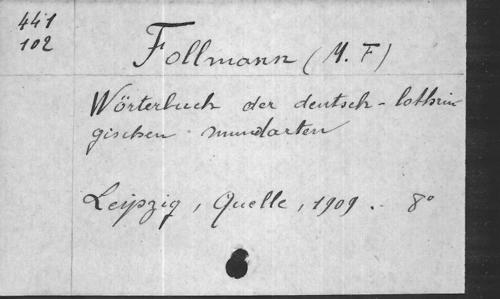 441
102
Follmann (M. F)
Wörterbuch der deutsch-lothrin
gischen mundarten
Leipzig, Quelle, 1909. 8°